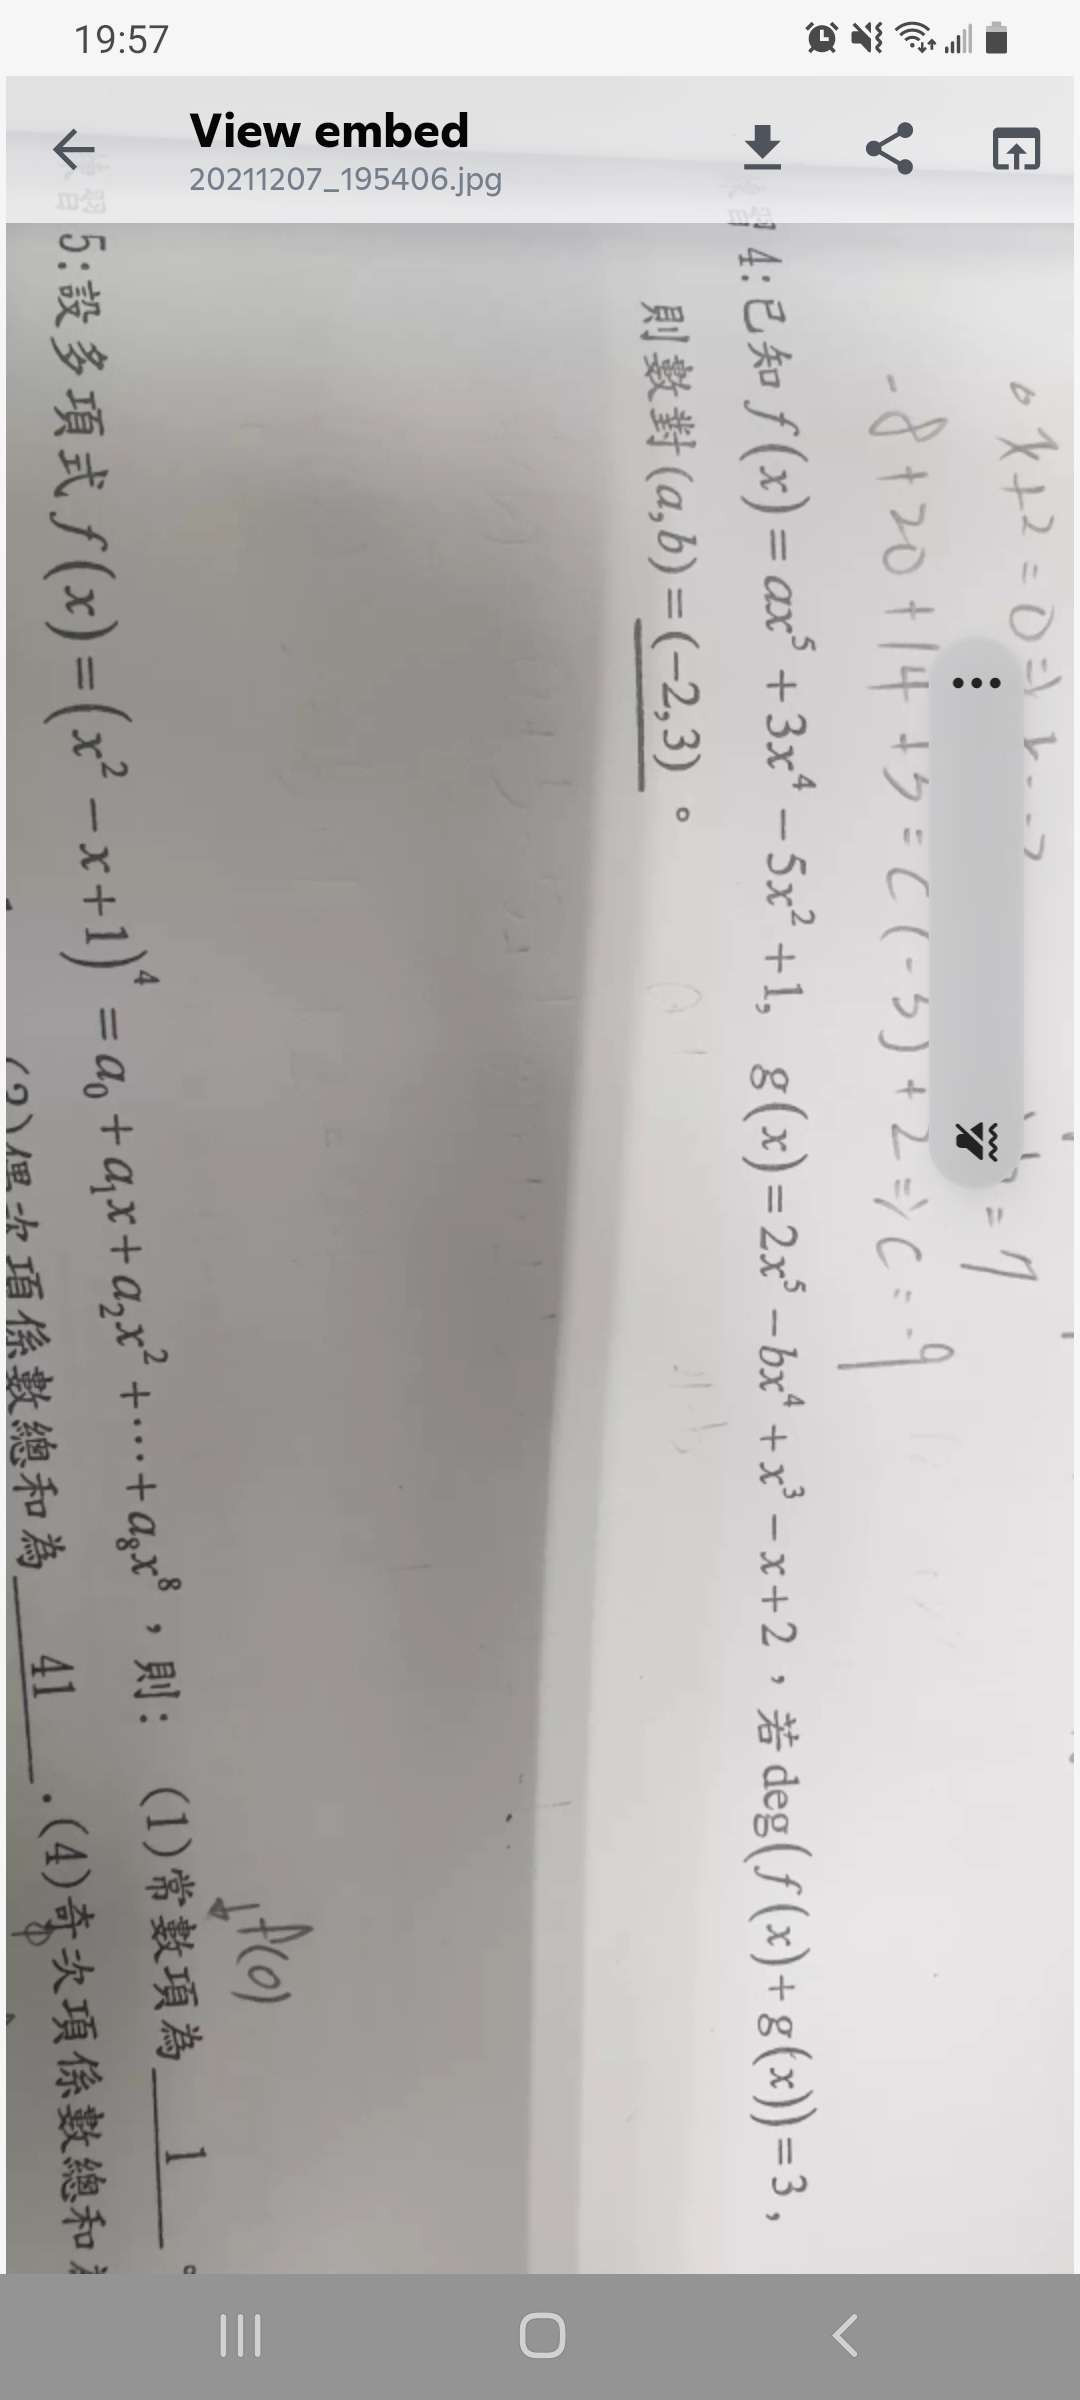 19:57
View embed
20211207_195406.jpg
x+2=0⇒
-8+20+14+5=C(-3)+2⇒C=-9
=7
4:已知 f(x)=ax⁵+3x⁴-5x²+1, g(x)=2x⁵-bx⁴+x³-x+2,若deg(f(x)+g(x))=3,
則數對(a,b)=(-2,3)。
f(0)
5:設多項式 f(x)=(x²-x+1)⁴=a₀+a₁x+a₂x²+⋯+a₈x⁸,則: (1)常數項為 1 。
偶次項係數總和為 41 .(4)奇次項係數總和